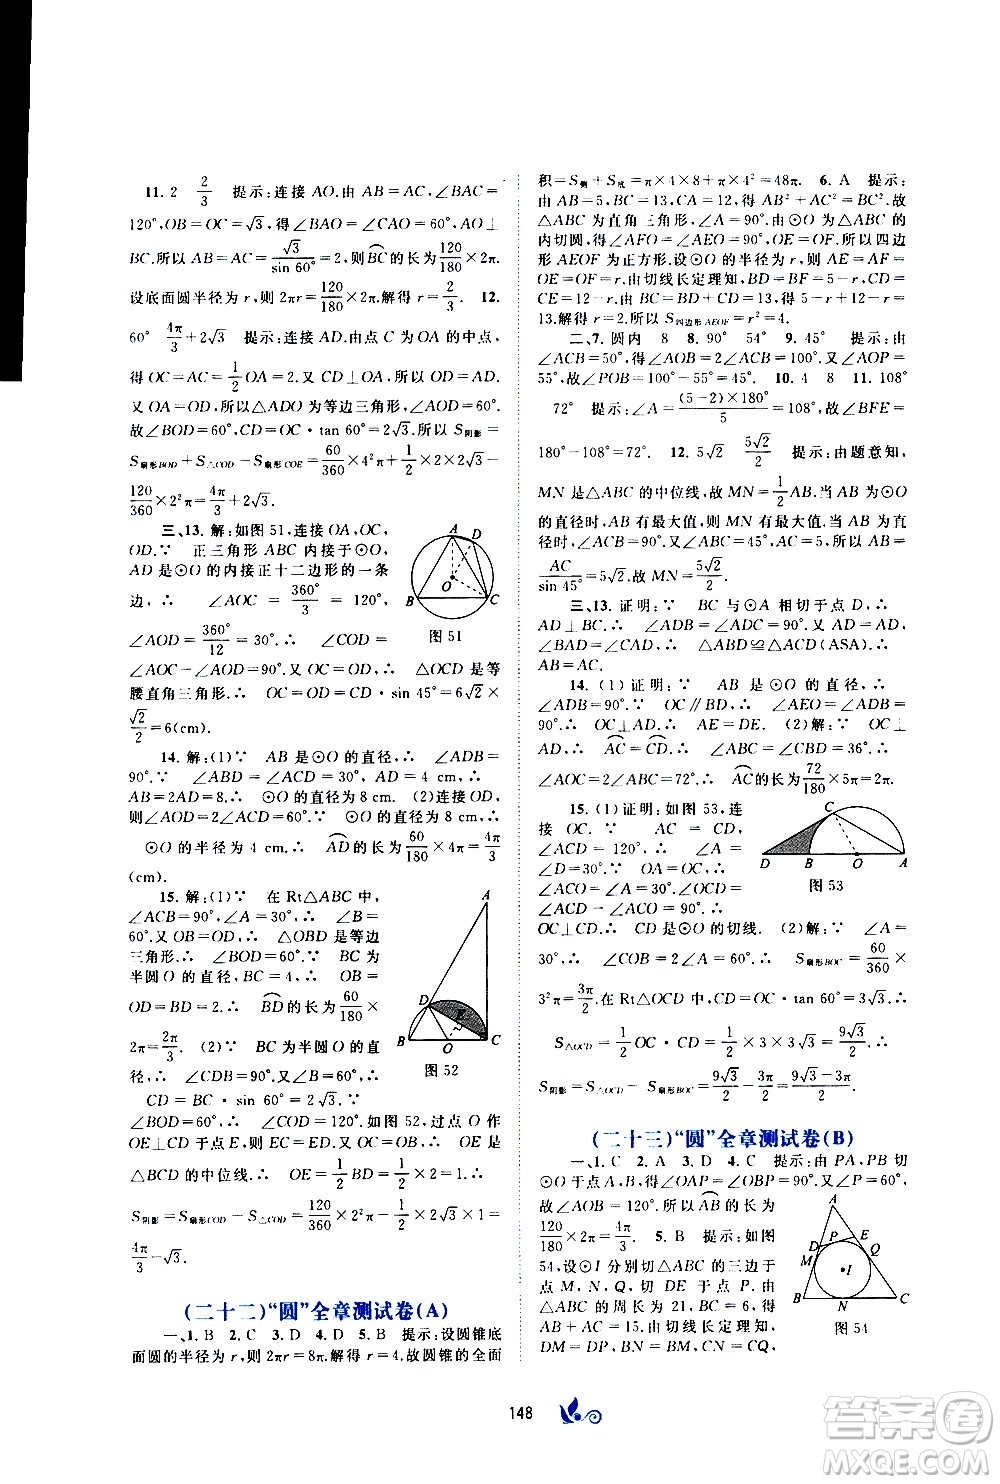 11. 2　2/3　提示:连接 AO. 由 AB=AC, ∠BAC=
120°, OB=OC=√3, 得∠BAO=∠CAO=60°, AO⊥
BC. 所以 AC=√3/sin 60°=2, 则⌒BC的长为120/180×2π.
设底面圆半径为 r, 则 2πr=120/180×2π. 解得 r=2/3　12.
60°　4π/3+2√3　提示:连接 AD. 由点 C 为 OA 的中点,
得 OC=AC=1/2 OA=2. 又 CD⊥OA, 所以 AD=OD.
又 OA=OD, 所以△ADO 为等边三角形, ∠BOD=60°.
故∠BOD=60°, CD=OC·tan 60°=2√3. 所以 S阴影=
S扇形BOD+S△COD-S扇形COE=60/360×4²π+1/2×2×2√3-
120/360×2²π=4π/3+2√3.
三、13. 解:如图 51, 连接 OA, OC,
OD. ∵　正三角形 ABC 内接于⊙O,
AD 是⊙O 的内接正十二边形的一条
边, ∴　∠AOC=360°/3=120°,
∠AOD=360°/12=30°. ∴　∠COD=
∠AOC-∠AOD=90°. 又 OC=OD, ∴　△OCD 是等
腰直角三角形. ∴　OC=OD=CD·sin 45°=6√2×
√2/2=6(cm).
A D O B C
图 51
14. 解:(1)∵　AB 是⊙O 的直径, ∴　∠ADB=
90°. ∵　∠ABD=∠ACD=30°, AD=4 cm, ∴
AB=2AD=8. ∴　⊙O 的直径为 8 cm. (2)连接 OD,
则∠AOD=2∠ACD=60°. ∵　⊙O 的直径为 8 cm, ∴
⊙O 的半径为 4 cm. ∴　⌒AD的长为60/180×4π=4π/3
(cm).
15. 解:(1)∵　在 Rt△ABC 中,
∠ACB=90°, ∠A=30°, ∴　∠B=
60°. 又 OB=OD, ∴　△OBD 是等边
三角形. ∴　∠BOD=60°. ∵　BC 为
半圆 O 的直径, BC=4, ∴　OB=
OD=BD=2. ∴　⌒BD的长为60/180×
2π=2π/3.　(2)∵　BC 为半圆 O 的直
径, ∴　∠CDB=90°. ∵　∠B=60°, ∴
CD=BC·sin 60°=2√3. ∵
∠BOD=60°, ∴　∠COD=120°. 如图 52, 过点 O 作
OE⊥CD 于点 E, 则可得 OE∥BD. 又 OB=OC, ∴　OE 是
△BCD 的中位线. ∴　OE=1/2 BD=1/2×2=1. ∴
S阴影=S扇形COD-S△COD=120/360×2²π-1/2×2√3×1=
4π/3-√3.
A D E B O C
图 52
(二十二)“圆”全章测试卷(A)
一、1. B　2. C　3. D　4. D　5. B　提示:设圆锥底
面圆的半径为 r, 则 2πr=8π. 解得 r=4, 故圆锥的全面
积=S侧+S底=π×4×8+π×4²=48π.　6. A　提示:
由 AB=5, BC=13, CA=12, 得 AB²+AC²=BC². 故
△ABC 为直角三角形, ∠A=90°. 由⊙O 为△ABC 的
内切圆, 得∠AFO=∠AEO=90°, OE=OF. 所以四边
形 AEOF 为正方形. 设⊙O 的半径为 r, 则 AF=AE=
OE=OF=r. 由切线长定理知, BD=BF=5-r, CD=
CE=12-r. 由 BC=BD+CD=13, 得 5-r+12-r=
13. 解得 r=2. 所以 S四边形AEOF=r²=4.
二、7. 圆内　8　8. 90°　54°　9. 45°　提示:由
∠ACB=50°, 得∠AOB=2∠ACB=100°. 又∠AOP=
55°, 故∠POB=45°.　10. 4　8　11. 108°
72°　提示:∠A=(5-2)×180°/5=108°, 故∠BFE=
180°-108°=72°.　12. 5√2　5√2/2　提示:由题意知,
MN 是△ABC 的中位线, 故 MN=1/2 AB. 当 AB 为⊙O
的直径时, AB 有最大值, 则 MN 有最大值. 当 AB 为直
径时, ∠ACB=90°. ∵　∠ABC=45°, AC=5, ∴　AB=
AC/sin 45°=5√2. 故 MN=5√2/2.
三、13. 证明:∵　BC 与⊙A 相切于点 D, ∴
AD⊥BC. ∴　∠ADB=∠ADC=90°. 又 AD=AD,
∠BAD=∠CAD, ∴　△ABD≌△ACD(ASA). ∴
AB=AC.
14. (1)证明:∵　AB 是⊙O 的直径, ∴
∠ADB=90°. ∵　OC∥BD, ∴　∠AEO=∠ADB=
90°. ∴　OC⊥AD. ∴　AE=DE.　(2)解:∵　OC⊥
AD, ∴　⌒AC=⌒CD. ∴　∠ABC=∠CBD=36°. ∴
∠AOC=2∠ABC=72°. ∴　⌒AC的长为72/180×5π=2π.
15. (1)证明:如图 53, 连
接 OC. ∵　AC=CD,
∠ACD=120°, ∴　∠A=
∠D=30°. ∵　OA=OC, ∴
∠ACO=∠A=30°. ∴　∠OCD=
∠ACD-∠ACO=90°. ∴
OC⊥CD. ∴　CD 是⊙O 的切线.　(2)解:∵　∠A=
30°, ∴　∠COB=2∠A=60°. ∴　S扇形BOC=60/360×
3²π=3π/2. 在 Rt△OCD 中, CD=OC·tan 60°=3√3. ∴
S△OCD=1/2 OC·CD=1/2×3×3√3=9√3/2. ∴
S阴影=S△OCD-S扇形BOC=9√3/2-3π/2=(9√3-3π)/2.
C D B O A
图 53
(二十三)“圆”全章测试卷(B)
一、1. C　2. A　3. D　4. C　提示:由 PA, PB 切
⊙O 于点 A, B, 得∠OAP=∠OBP=90°. 又∠P=60°,
故∠AOB=120°. 所以⌒AB的长为
120/180×2π=4π/3.　5. B　提示:如图
54, 设⊙I 分别切△ABC 的三边于
点 M, N, Q, 切 DE 于点 P. 由
△ABC 的周长为 21, BC=6, 得
AB+AC=15. 由切线长定理, 得
DM=DP, BM=BN, CN=CQ,
A P E D M Q I B N C
图 54
148
答案圈
MXQE.COM